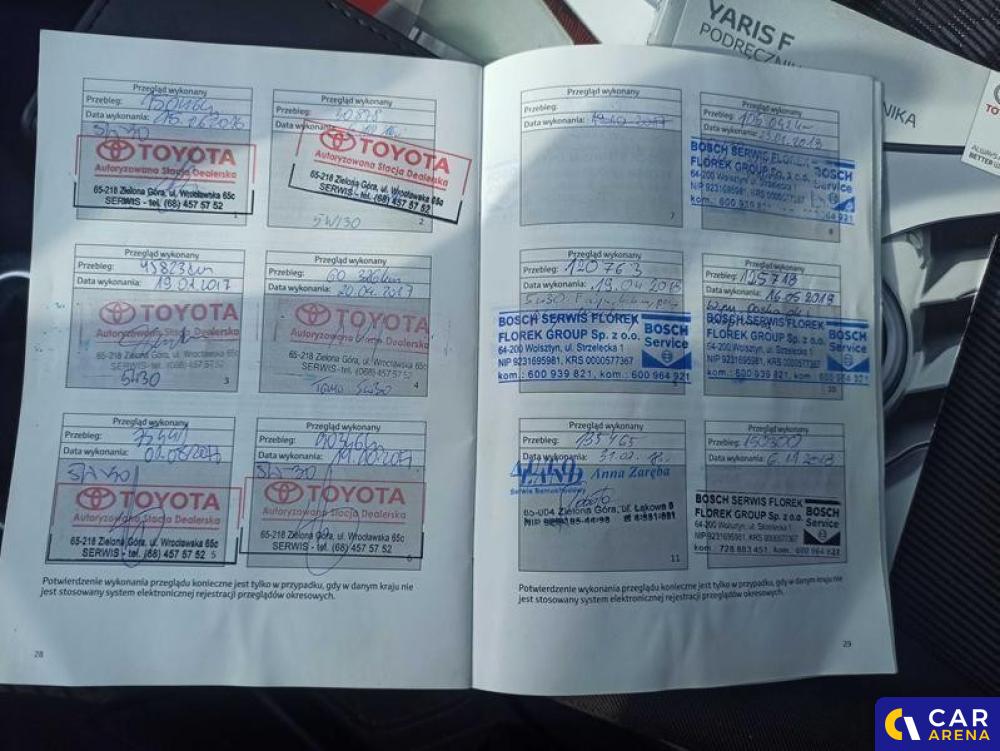 YARIS F
PODRĘCZNI
NIKA
Przegląd wykonany
Przebieg:
Data wykonania: 15.06.2016
5W30
TOYOTA
Autoryzowana Stacja Dealerska
65-218 Zielona Góra, ul. Wrocławska 65c
SERWIS - tel. (68) 457 57 52
1
Przegląd wykonany
Przebieg:
Data wykonania:
TOYOTA
Autoryzowana Stacja Dealerska
65-218 Zielona Góra, ul. Wrocławska 65c
SERWIS - tel. (68) 457 57 52
5W30
2
Przegląd wykonany
Przebieg: 45823km
Data wykonania: 19.01.2017
TOYOTA
Autoryzowana Stacja Dealerska
65-218 Zielona Góra, ul. Wrocławska 65c
SERWIS - tel. (68) 457 57 52
5W30
3
Przegląd wykonany
Przebieg: 60 326km
Data wykonania: 20.04.2017
TOYOTA
Autoryzowana Stacja Dealerska
65-218 Zielona Góra, ul. Wrocławska 65c
SERWIS - tel. (68) 457 57 52
5W30
4
Przegląd wykonany
Przebieg:
Data wykonania:
5W30
TOYOTA
Autoryzowana Stacja Dealerska
65-218 Zielona Góra, ul. Wrocławska 65c
SERWIS - tel. (68) 457 57 52
5
Przegląd wykonany
Przebieg: 90346km
Data wykonania: 19.10.2017
5W30
TOYOTA
Autoryzowana Stacja Dealerska
65-218 Zielona Góra, ul. Wrocławska 65c
SERWIS - tel. (68) 457 57 52
6
Potwierdzenie wykonania przeglądu konieczne jest tylko w przypadku, gdy w danym kraju nie
jest stosowany system elektronicznej rejestracji przeglądów okresowych.
28
Przegląd wykonany
Przebieg:
Data wykonania: 19.10.2017
7
Przegląd wykonany
Przebieg:
Data wykonania:
BOSCH SERWIS FLOREK
FLOREK GROUP Sp. z o.o.
64-200 Wolsztyn, ul. Strzelecka 1
NIP 9231695981, KRS 0000577367
kom.: 600 939 821, kom.: 600 964 921
Service
8
Przegląd wykonany
Przebieg: 120763
Data wykonania: 19.04.2018
5W30
BOSCH SERWIS FLOREK
FLOREK GROUP Sp. z o.o.
64-200 Wolsztyn, ul. Strzelecka 1
NIP 9231695981, KRS 0000577367
kom.: 600 939 821, kom.: 600 964 921
BOSCH
Service
Przegląd wykonany
Przebieg: 125718
Data wykonania: 16.05.2018
BOSCH SERWIS FLOREK
FLOREK GROUP Sp. z o.o.
64-200 Wolsztyn, ul. Strzelecka 1
NIP 9231695981, KRS 0000577367
kom.: 600 939 821, kom.: 600 964 921
BOSCH
Service
10
Przegląd wykonany
Przebieg: 135465
Data wykonania:
Anna Zaręba
Serwis Samochodowy
65-004 Zielona Góra, ul. Łąkowa
11
Przegląd wykonany
Przebieg: 150300
Data wykonania:
BOSCH SERWIS FLOREK
FLOREK GROUP Sp. z o.o.
64-200 Wolsztyn, ul. Strzelecka 1
NIP 9231695981, KRS 0000577367
kom.: 728 883 451, kom.: 600 964 921
BOSCH
Service
Potwierdzenie wykonania przeglądu konieczne jest tylko w przypadku, gdy w danym kraju nie
jest stosowany system elektronicznej rejestracji przeglądów okresowych.
29
CAR
ARENA